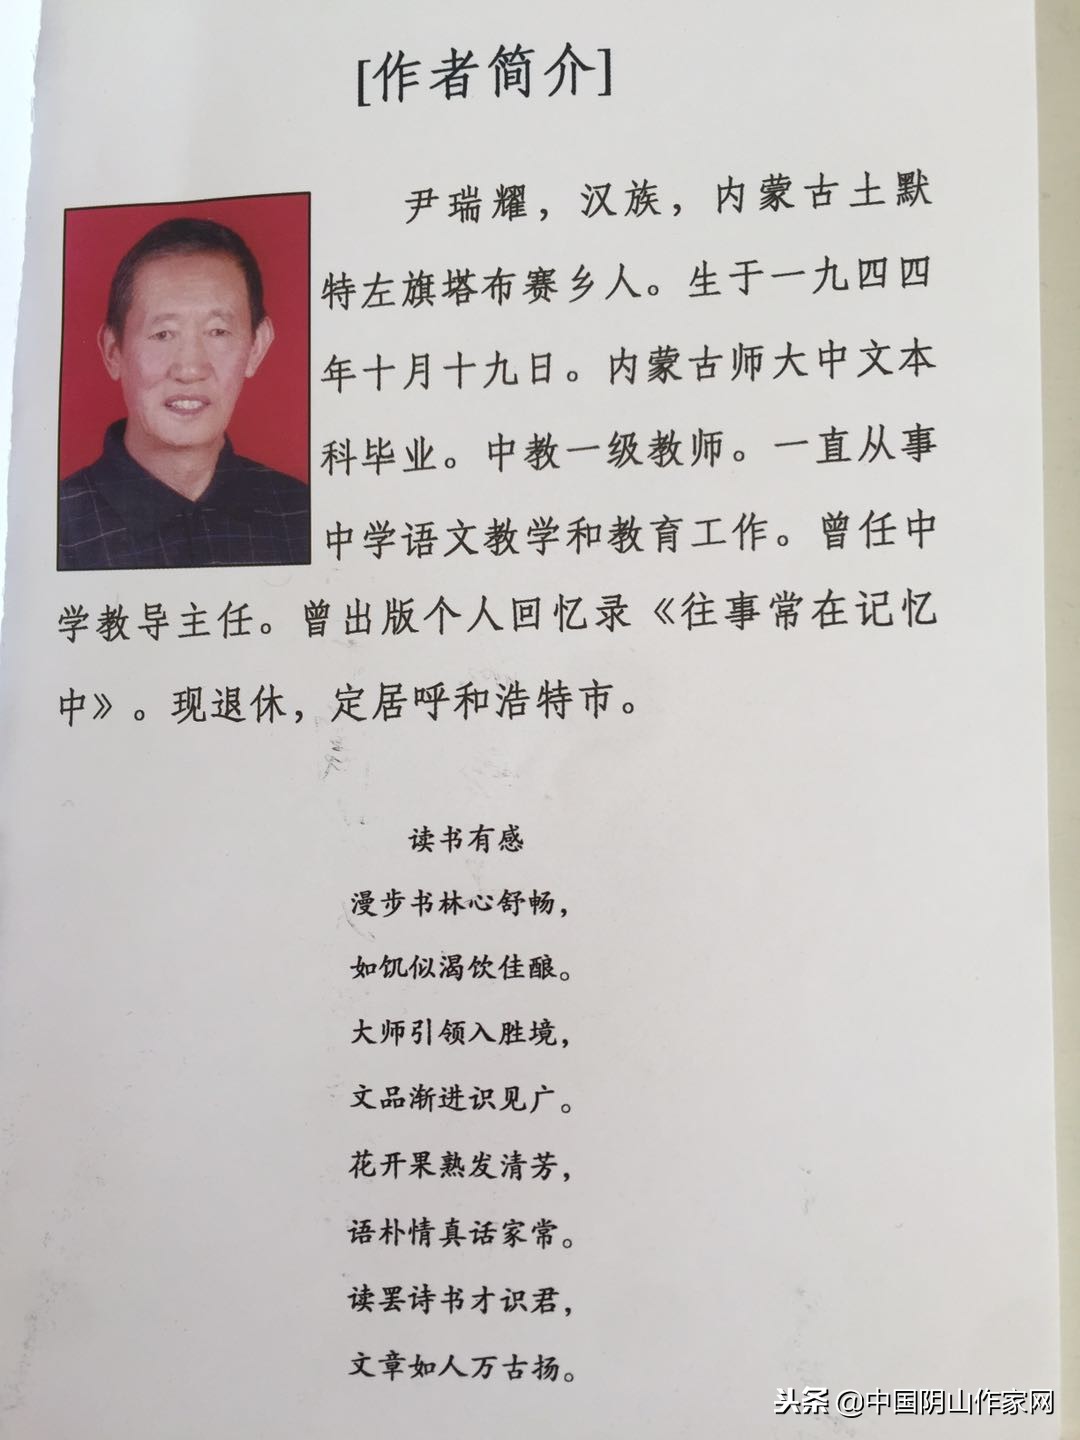 [作者简介]
尹瑞耀，汉族，内蒙古土默
特左旗塔布赛乡人。生于一九四四
年十月十九日。内蒙古师大中文本
科毕业。中教一级教师。一直从事
中学语文教学和教育工作。曾任中
学教导主任。曾出版个人回忆录《往事常在记忆
中》。现退休，定居呼和浩特市。
读书有感
漫步书林心舒畅，
如饥似渴饮佳酿。
大师引领入胜境，
文品渐进识见广。
花开果熟发清芳，
语朴情真话家常。
读罢诗书才识君，
文章如人万古扬。
头条 @中国阴山作家网